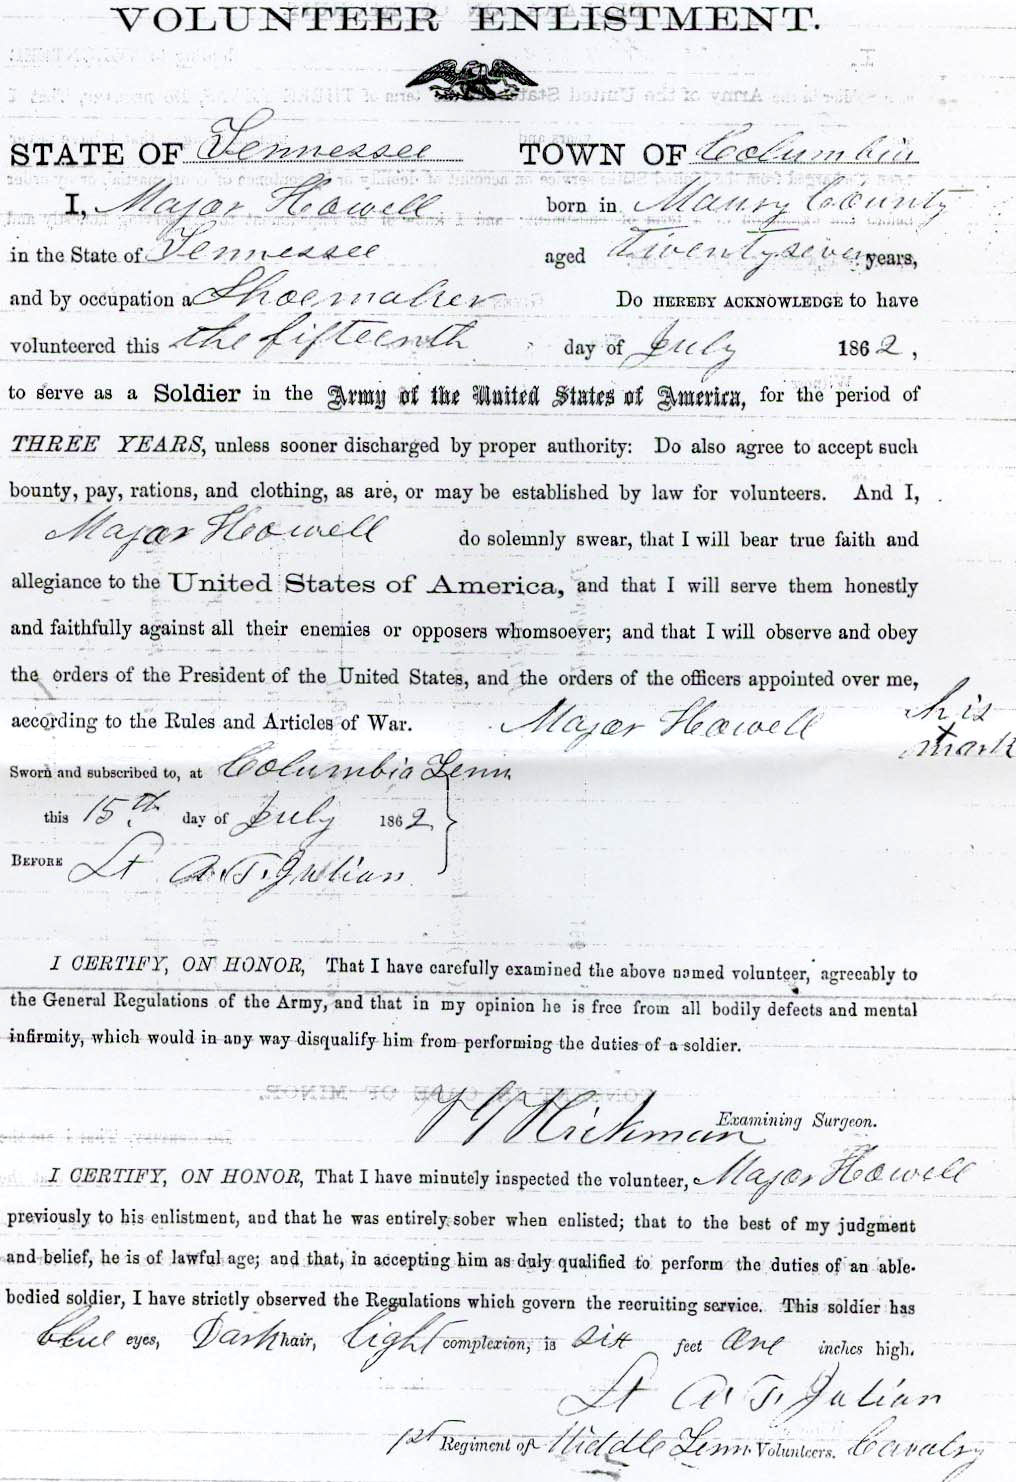 VOLUNTEER ENLISTMENT.
STATE OF Tennessee TOWN OF Columbia
I, Major Howell born in Maury County
in the State of Tennessee aged Twenty seven years,
and by occupation a Shoemaker Do HEREBY ACKNOWLEDGE to have
volunteered this the fifteenth day of July 1862,
to serve as a Soldier in the Army of the United States of America, for the period of
THREE YEARS, unless sooner discharged by proper authority: Do also agree to accept such
bounty, pay, rations, and clothing, as are, or may be established by law for volunteers. And I,
Major Howell do solemnly swear, that I will bear true faith and
allegiance to the United States of America, and that I will serve them honestly
and faithfully against all their enemies or opposers whomsoever; and that I will observe and obey
the orders of the President of the United States, and the orders of the officers appointed over me,
according to the Rules and Articles of War. Major Howell his
x mark
Sworn and subscribed to, at Columbia Tenn
this 15th day of July 1862
BEFORE Lt A. T. Julian
I CERTIFY, ON HONOR, That I have carefully examined the above named volunteer, agreeably to
the General Regulations of the Army, and that in my opinion he is free from all bodily defects and mental
infirmity, which would in any way disqualify him from performing the duties of a soldier.
Hickman Examining Surgeon.
I CERTIFY, ON HONOR, That I have minutely inspected the volunteer, Major Howell
previously to his enlistment, and that he was entirely sober when enlisted; that to the best of my judgment
and belief, he is of lawful age; and that, in accepting him as duly qualified to perform the duties of an able-
bodied soldier, I have strictly observed the Regulations which govern the recruiting service. This soldier has
blue eyes, Dark hair, light complexion, is six feet one inches high.
Lt A. T. Julian
1st Regiment of Middle Tenn Volunteers. Cavalry